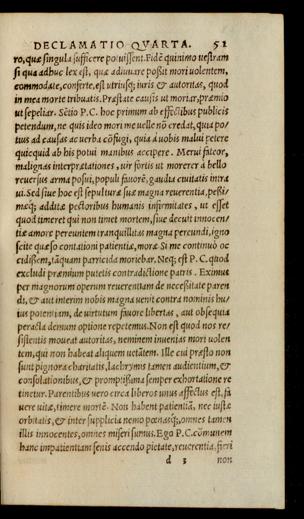 DECLAMATIO QVARTA. 51
ro, quæ singula sufficere potuissent. Fidẽ quinimo uestram
si qua adhuc lex est, quæ adiuuare possit mori uolentem,
commodate, conferte, est utriusq; iuris & autoritas, quod
in mea morte tribuatis. Præstate causis ut moriar, præmio
ut sepeliar. Sẽtio P.C. hoc primum ab effectibus publicis
petendum, ne quis ideo mori me uelle nõ credat, quia po/
tius ad causas ac uerba cõfugi, quia à uobis malui petere
quicquid ab his potui manibus accipere. Merui fateor,
malignas interpretationes, uir fortis ut morerer à bello
reuersus arma posui, populi fauorẽ, gaudia ciuitatis intra
ui. Sed siue hoc est sepulturæ suæ magna reuerentia, pessi/
maq; additæ pectoribus humanis infirmitates, ut esset
quod timeret qui non timet mortem, siue decuit innocen/
tiæ amore pereuntem tranquillitas magna pereundi, igno
scite quæso contationi patientiæ, moræ Si me continuò oc
cidissem, tãquam parricida moriebar. Neq; est P.C. quod
excludi præmium putetis contradictione patris. Eximus
per magnorum operum reuerentiam de necessitate paren
di, & aut interim nobis magna uenit contra nominis hu/
ius potentiam, de uirtutum fauore libertas, aut obsequia
peracta deinum optione repetemus. Non est quod nos re/
sistentis moueat autoritas, neminem inuenias mori uolen
tem, qui non habeat aliquem uetãtem. Ille cui præsto non
sunt pignora charitatis, lachrymis tamen audientium, &
consolationibus, & promptissima semper exhortatione re
tinetur. Parentibus uero circa liberos unus affectus est, si
uere uitæ, timere mortẽ. Non habent patientiã, nec iustæ
orbitatis, & inter supplicia nemo pœnasq;, omnes tamen
illis innocentes, omnes miseri sumus. Ego P.C. cõmunem
hanc impatientiam senis accendo pietate, reuerentia, fieri
d 3 non